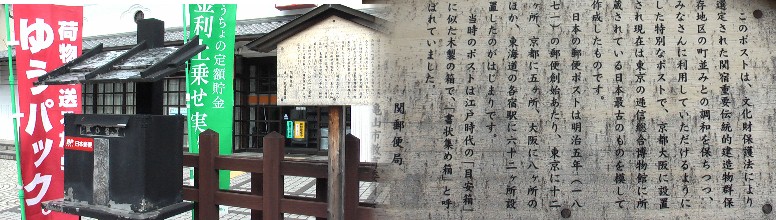 荷物
送る
ゆうパック。
ゆうちょの定額貯金
金利上乗せ実
日本郵便
このポストは、文化財保護法により
選定された関宿重要伝統的建造物群保
存地区の町並みとの調和を保ちつつ、
みなさんに利用していただけるように
した特別なポストで、京都大阪に設置
され現在は東京の逓信総合博物館に所
蔵されている日本最古のものを模して
作成したものです。
日本の郵便ポストは明治五年（一八
七一）の郵便創始あたり、東京に十二
ヶ所、京都に五ヶ所、大阪に八ヶ所の
ほか、東海道の各宿駅に六十二ヶ所設
置したのがはじまりです。
当時のポストは江戸時代の「目安箱」
に似た木製の箱で、「書状集め箱」と呼
ばれていました。
関郵便局